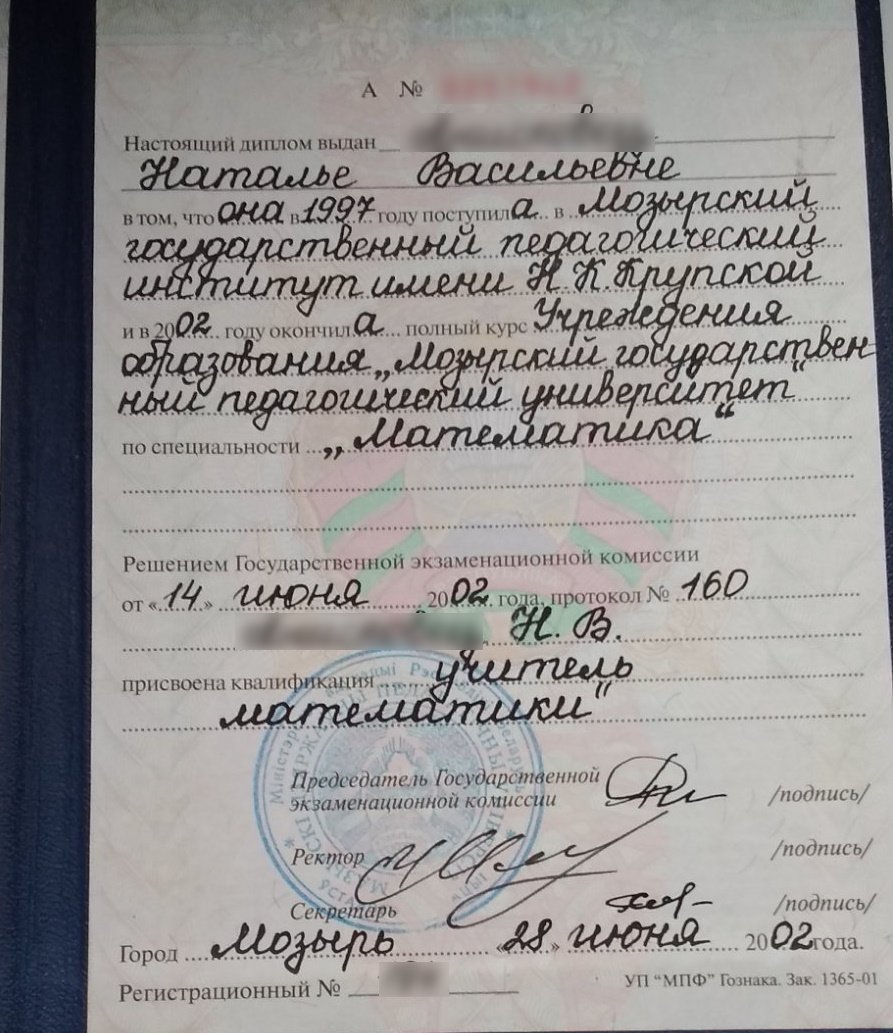 А №
Настоящий диплом выдан
Наталье Васильевне
в том, что она в 1997 году поступила в Мозырский
государственный педагогический
институт имени Н.К.Крупской
и в 2002 году окончила полный курс Учреждения
образования „Мозырский государствен
ный педагогический университет“
по специальности „Математика“
Решением Государственной экзаменационной комиссии
от «14» июня 2002 года, протокол № 160
Н. В.
присвоена квалификация учитель
математики“
Председатель Государственной
экзаменационной комиссии /подпись/
Ректор /подпись/
Секретарь /подпись/
Город Мозырь «28» июня 2002 года.
Регистрационный №
УП “МПФ” Гознака. Зак. 1365-01